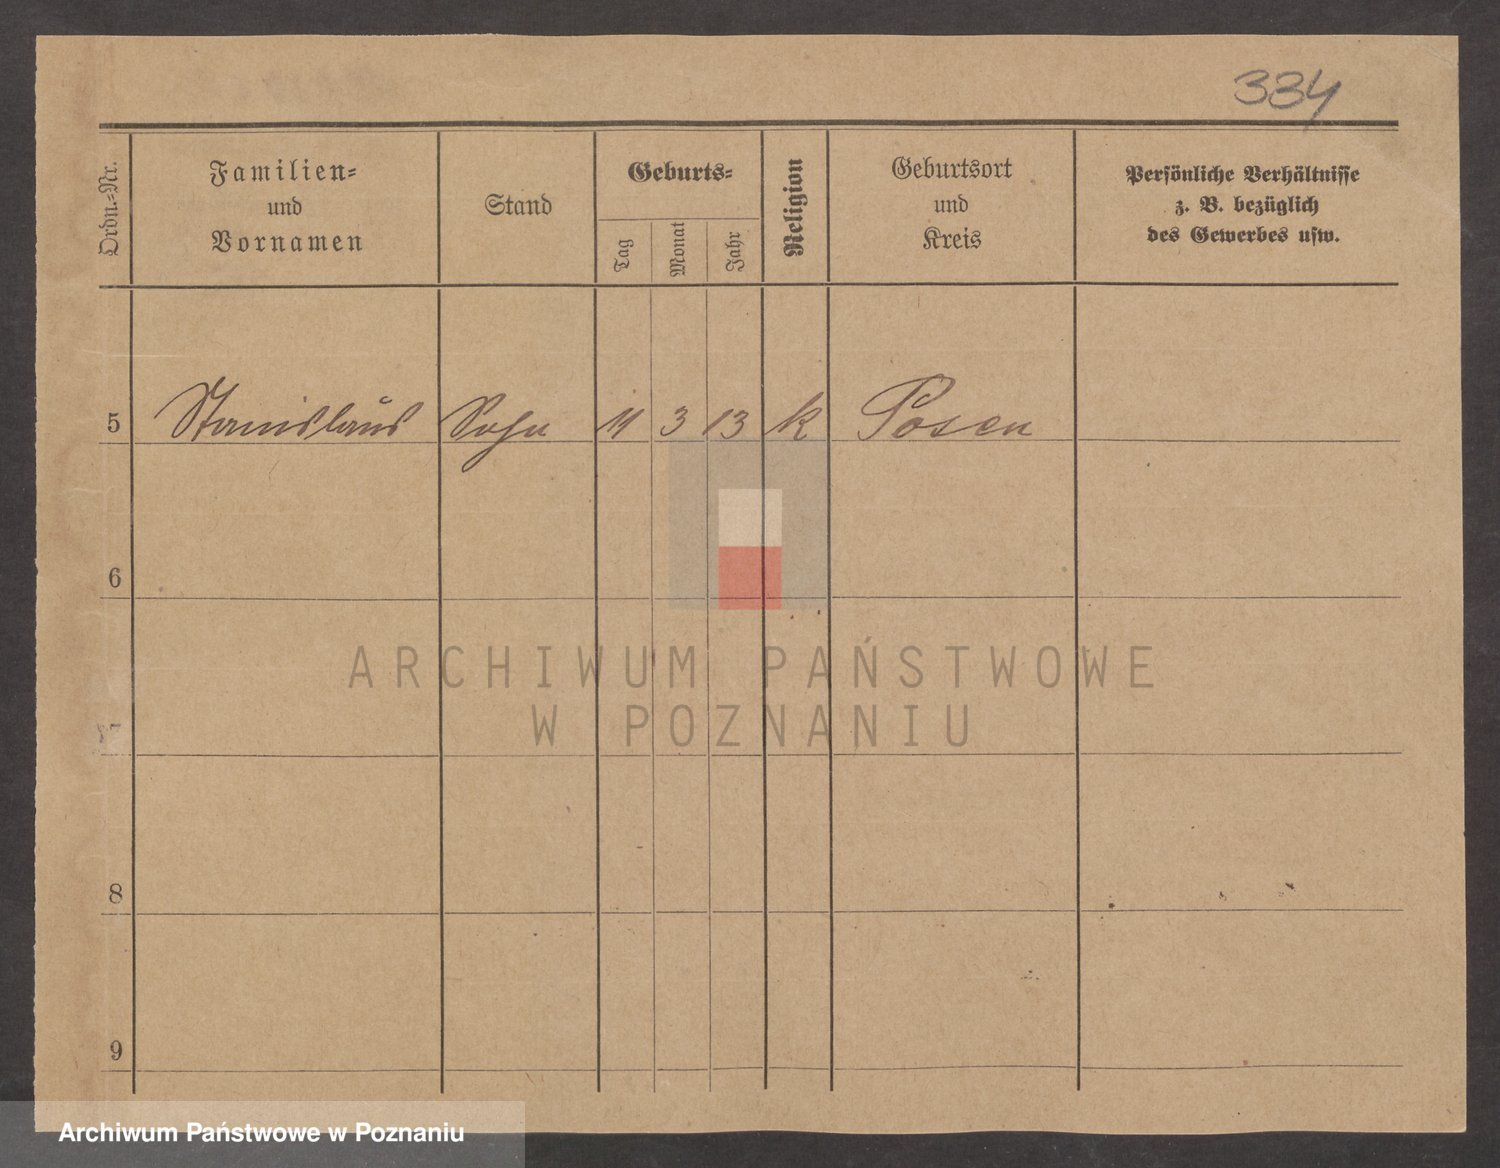 334
Ordn.-Nr.
Familien-
und
Vornamen
Stand
Geburts-
Tag
Monat
Jahr
Religion
Geburtsort
und
Kreis
Persönliche Verhältnisse
z. B. bezüglich
des Gewerbes usw.
5 Stanislaus Sohn 11 3 13 k Posen
6
7
8
9
ARCHIWUM PAŃSTWOWE
W POZNANIU
Archiwum Państwowe w Poznaniu